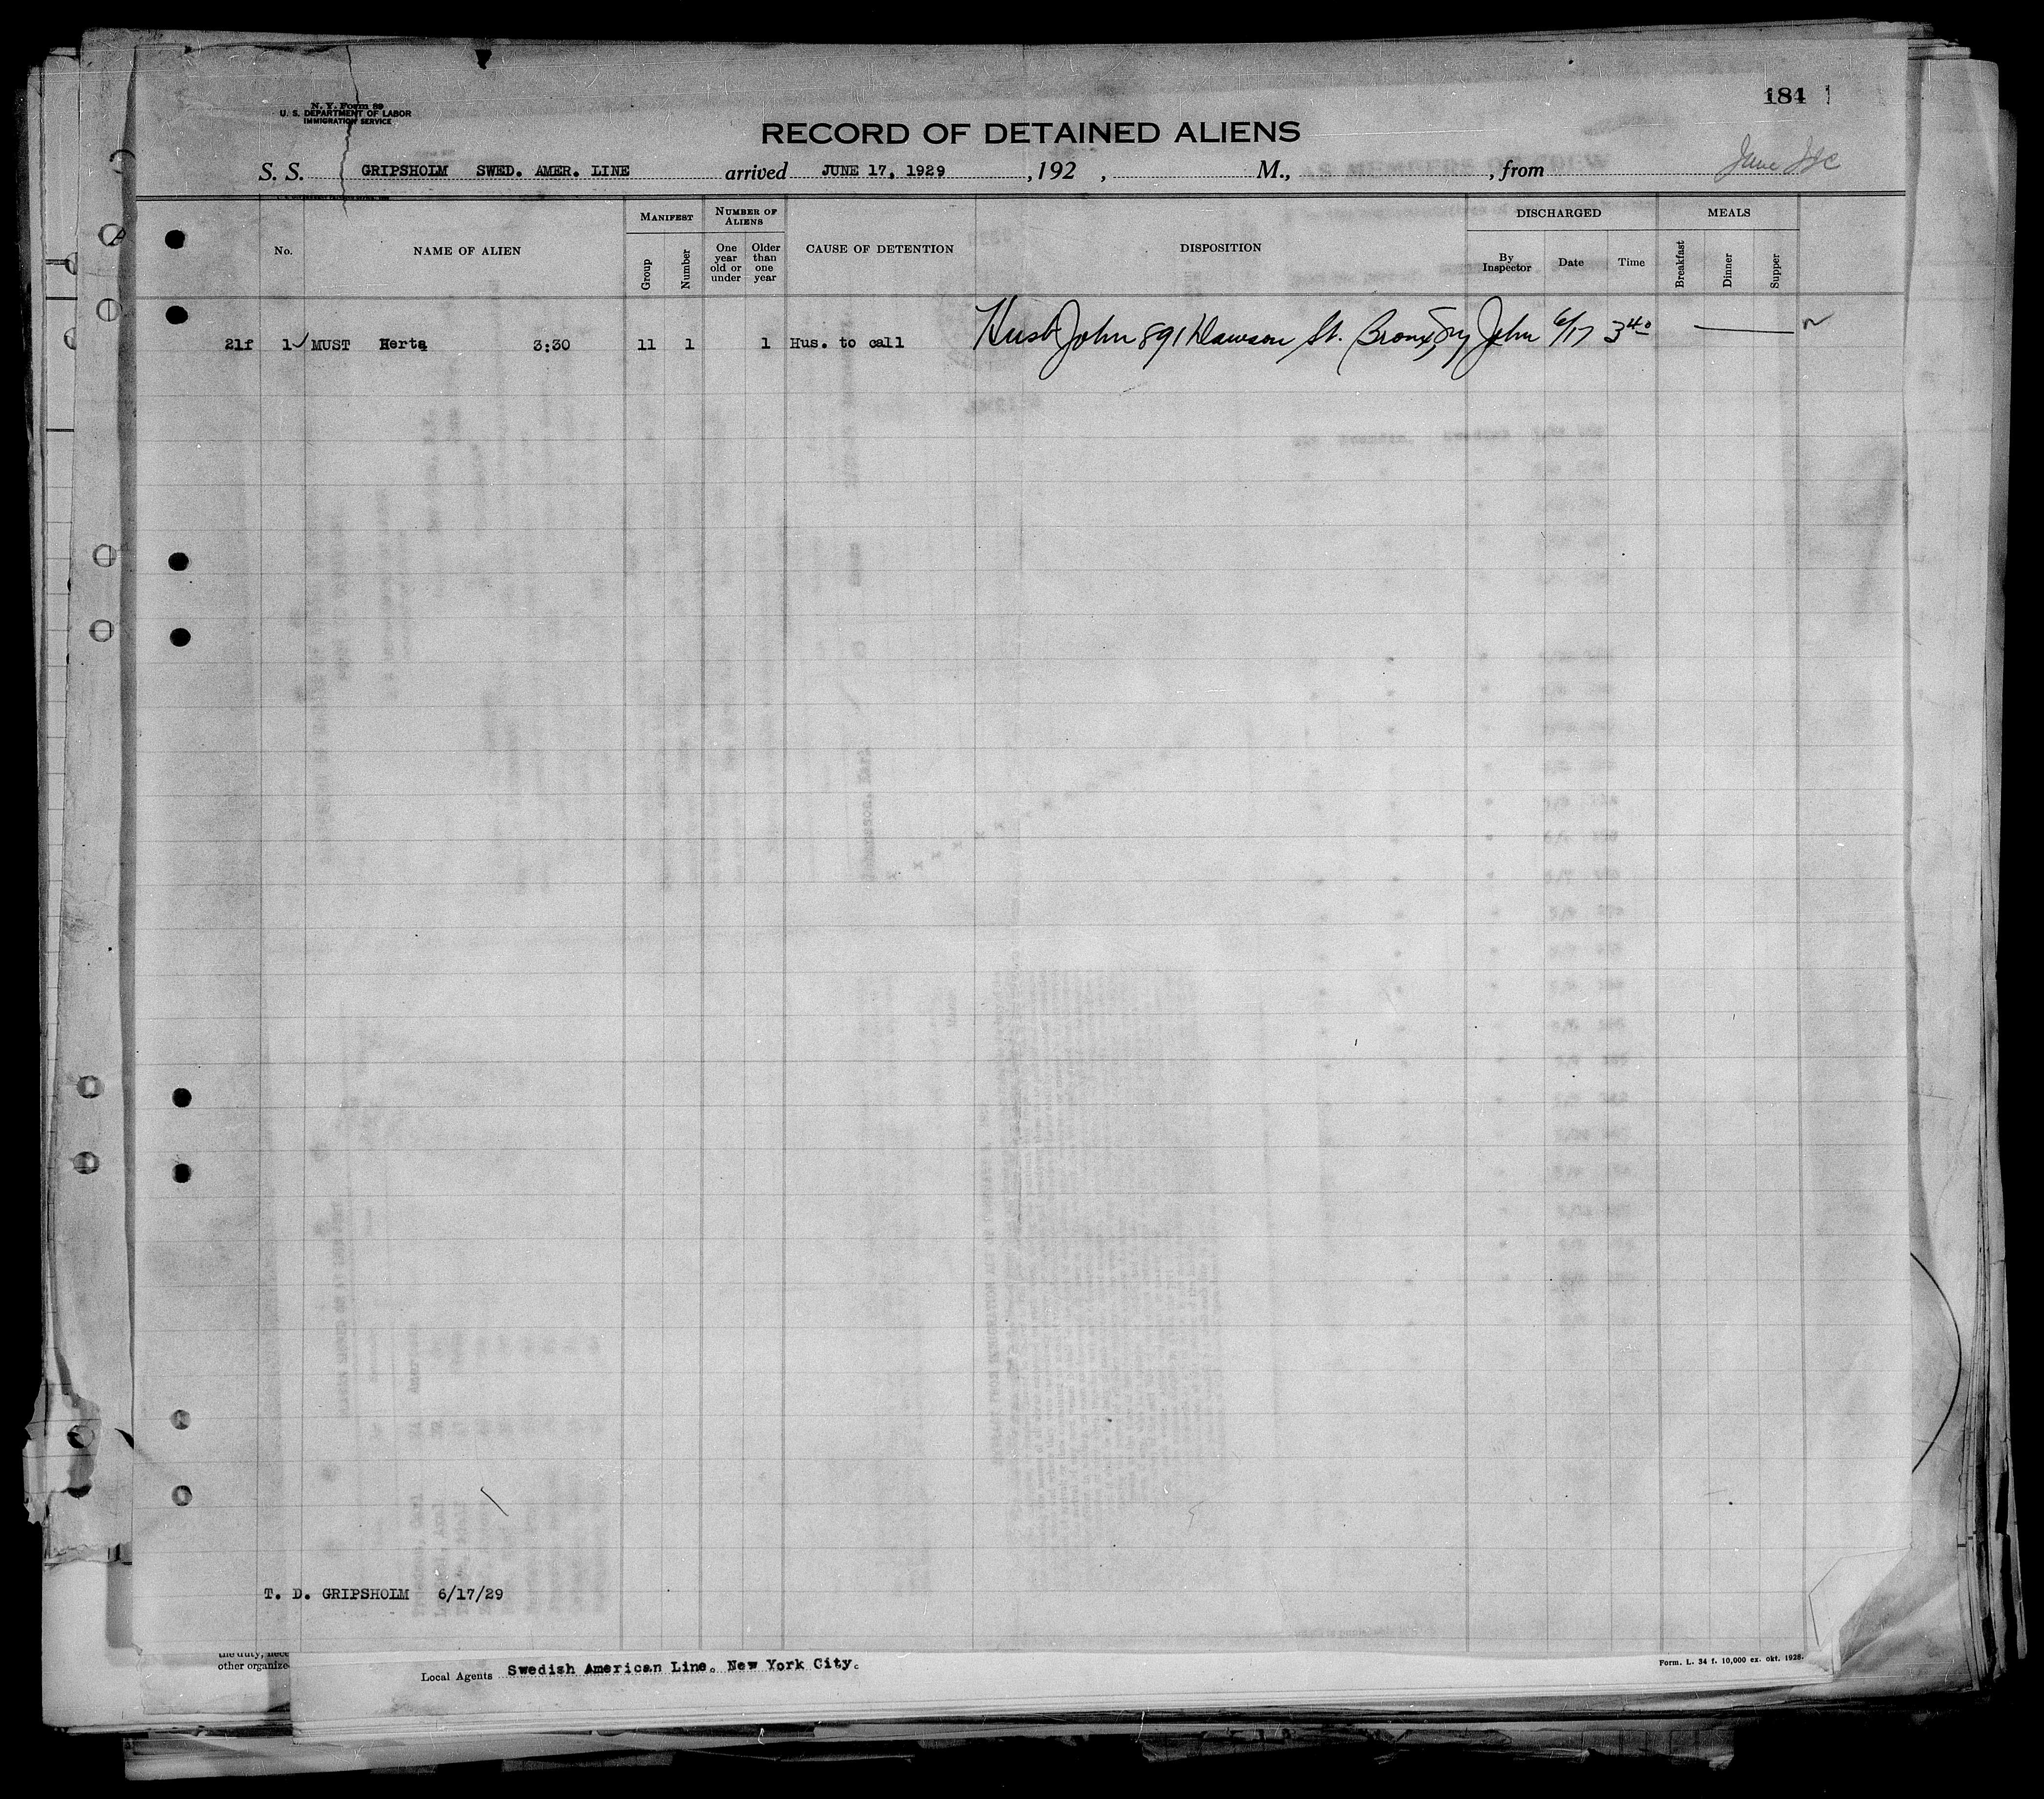 184
N. Y. Form 89
U. S. DEPARTMENT OF LABOR
IMMIGRATION SERVICE
RECORD OF DETAINED ALIENS
S. S. GRIPSHOLM SWED. AMER. LINE arrived JUNE 17, 1929 , 192 , M., from
No. NAME OF ALIEN MANIFEST Group Number NUMBER OF ALIENS One year old or under Older than one year CAUSE OF DETENTION DISPOSITION DISCHARGED By Inspector Date Time MEALS Breakfast Dinner Supper
21f 1 MUST Herta 3:30 11 1 1 Hus. to call Husb John 891 Dawson St. Bronx, NY John 6/17 3 40
T. D. GRIPSHOLM 6/17/29
the duty, nece
other organize
Local Agents Swedish American Line. New York City.
Form. L. 34 f. 10,000 ex. okt. 1928.